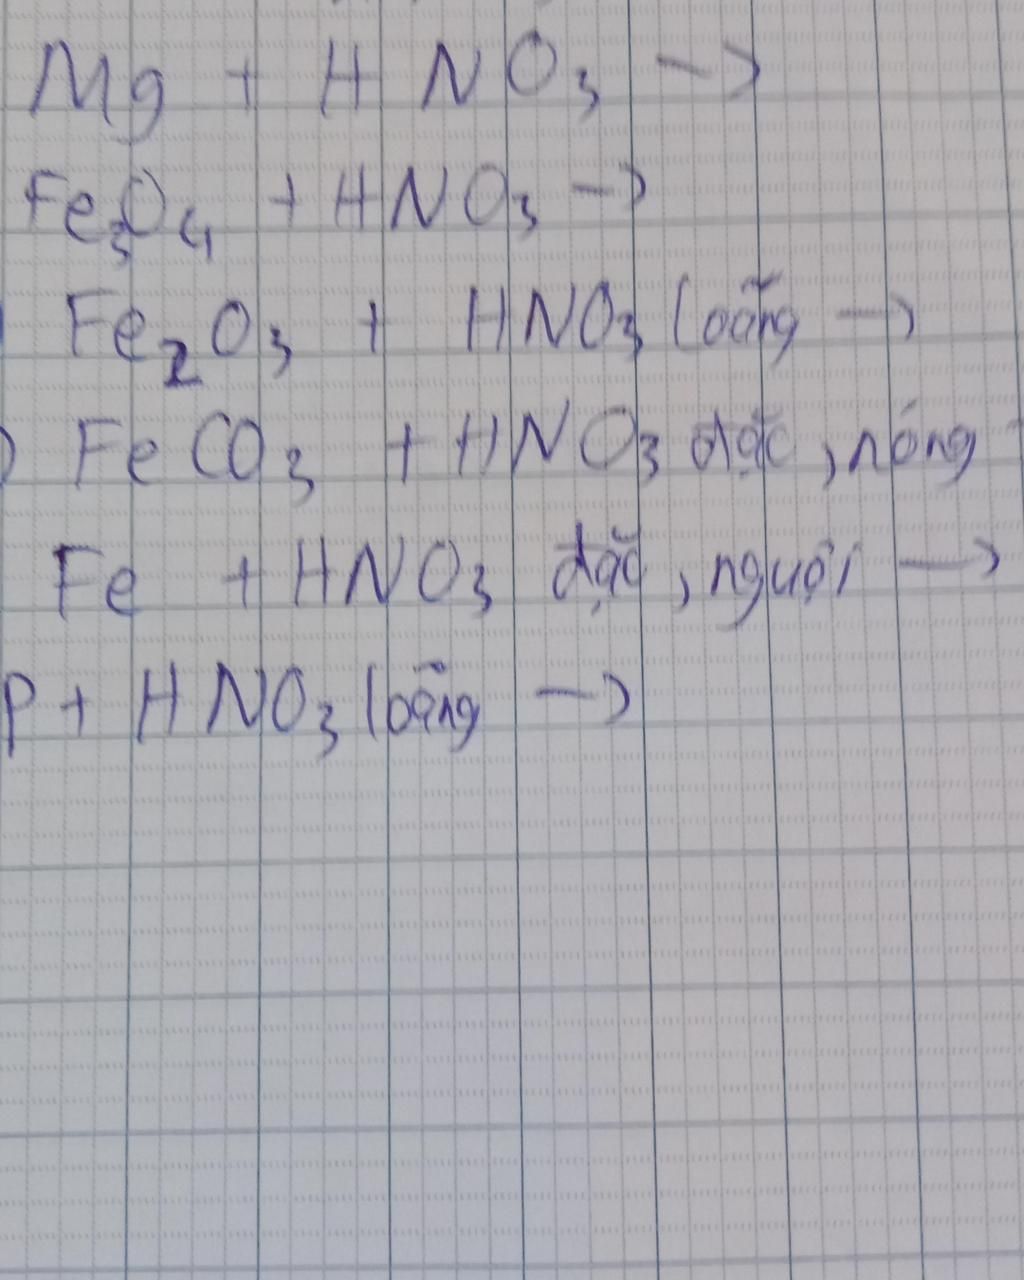 Mg + HNO3 →
Fe3O4 + HNO3 →
Fe2O3 + HNO3 loãng →
) FeCO3 + HNO3 đặc, nóng
Fe + HNO3 đặc, nguội →
P + HNO3 loãng →